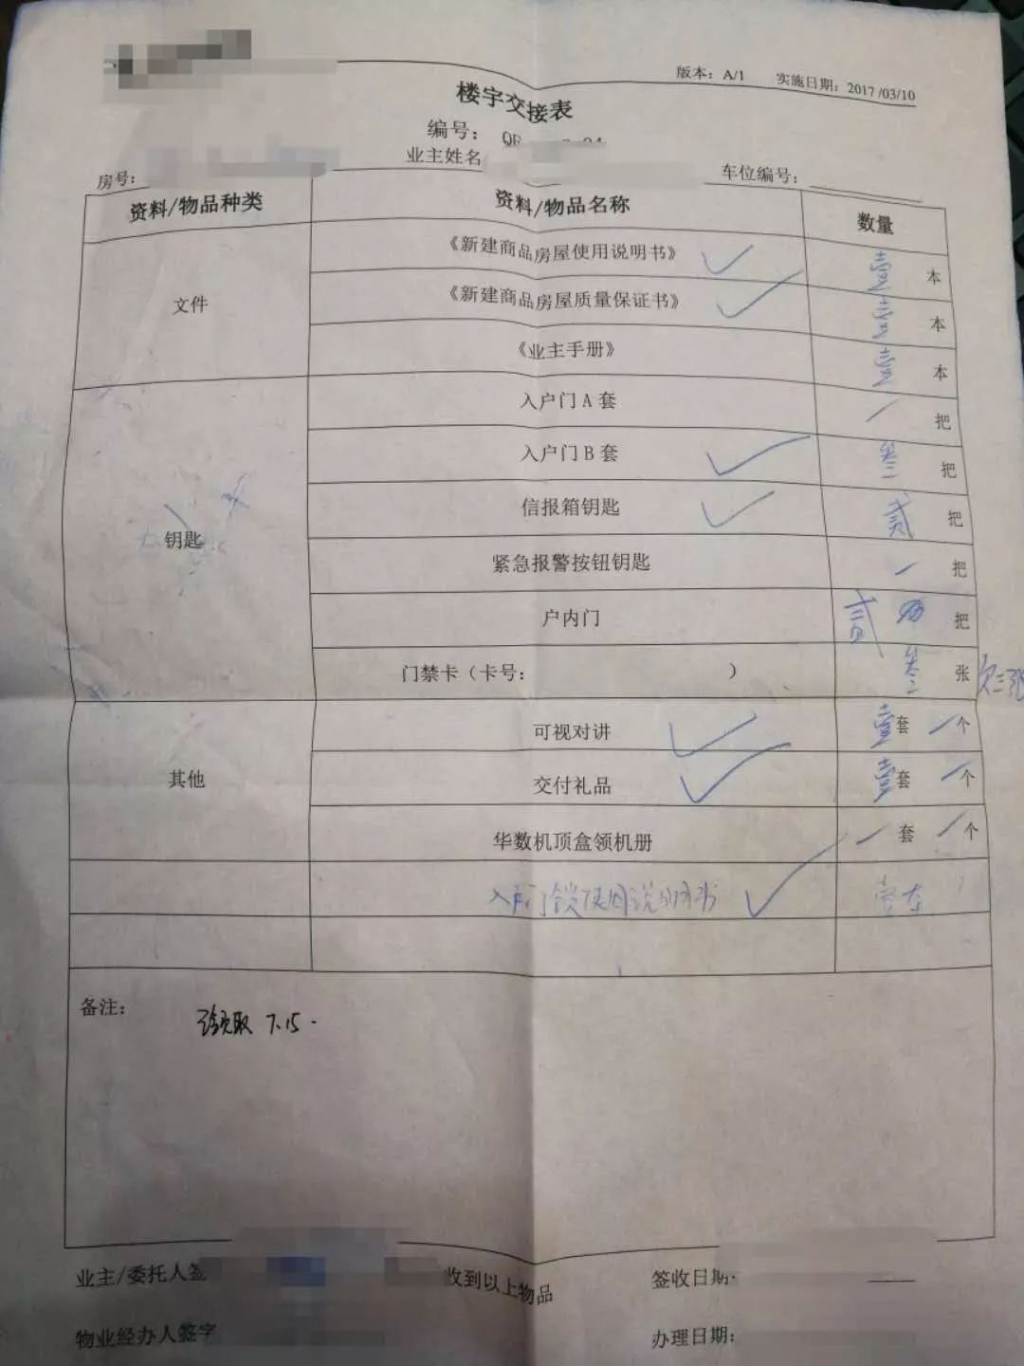 版本：A/1 实施日期：2017/03/10
楼宇交接表
编号：
业主姓名
房号： 车位编号：
资料/物品种类 资料/物品名称 数量
文件 《新建商品房屋使用说明书》 壹 本
《新建商品房屋质量保证书》 壹 本
《业主手册》 壹 本
钥匙 入户门 A 套 / 把
入户门 B 套 叁 把
信报箱钥匙 贰 把
紧急报警按钮钥匙 / 把
户内门 贰 把
门禁卡（卡号： ） 叁 张 欠三张
其他 可视对讲 壹 套 / 个
交付礼品 壹 套 / 个
华数机顶盒领机册 / 套 / 个
入户门锁使用说明书 壹本
备注：
领取 7.15.
业主/委托人签 收到以上物品 签收日期
物业经办人签字 办理日期：